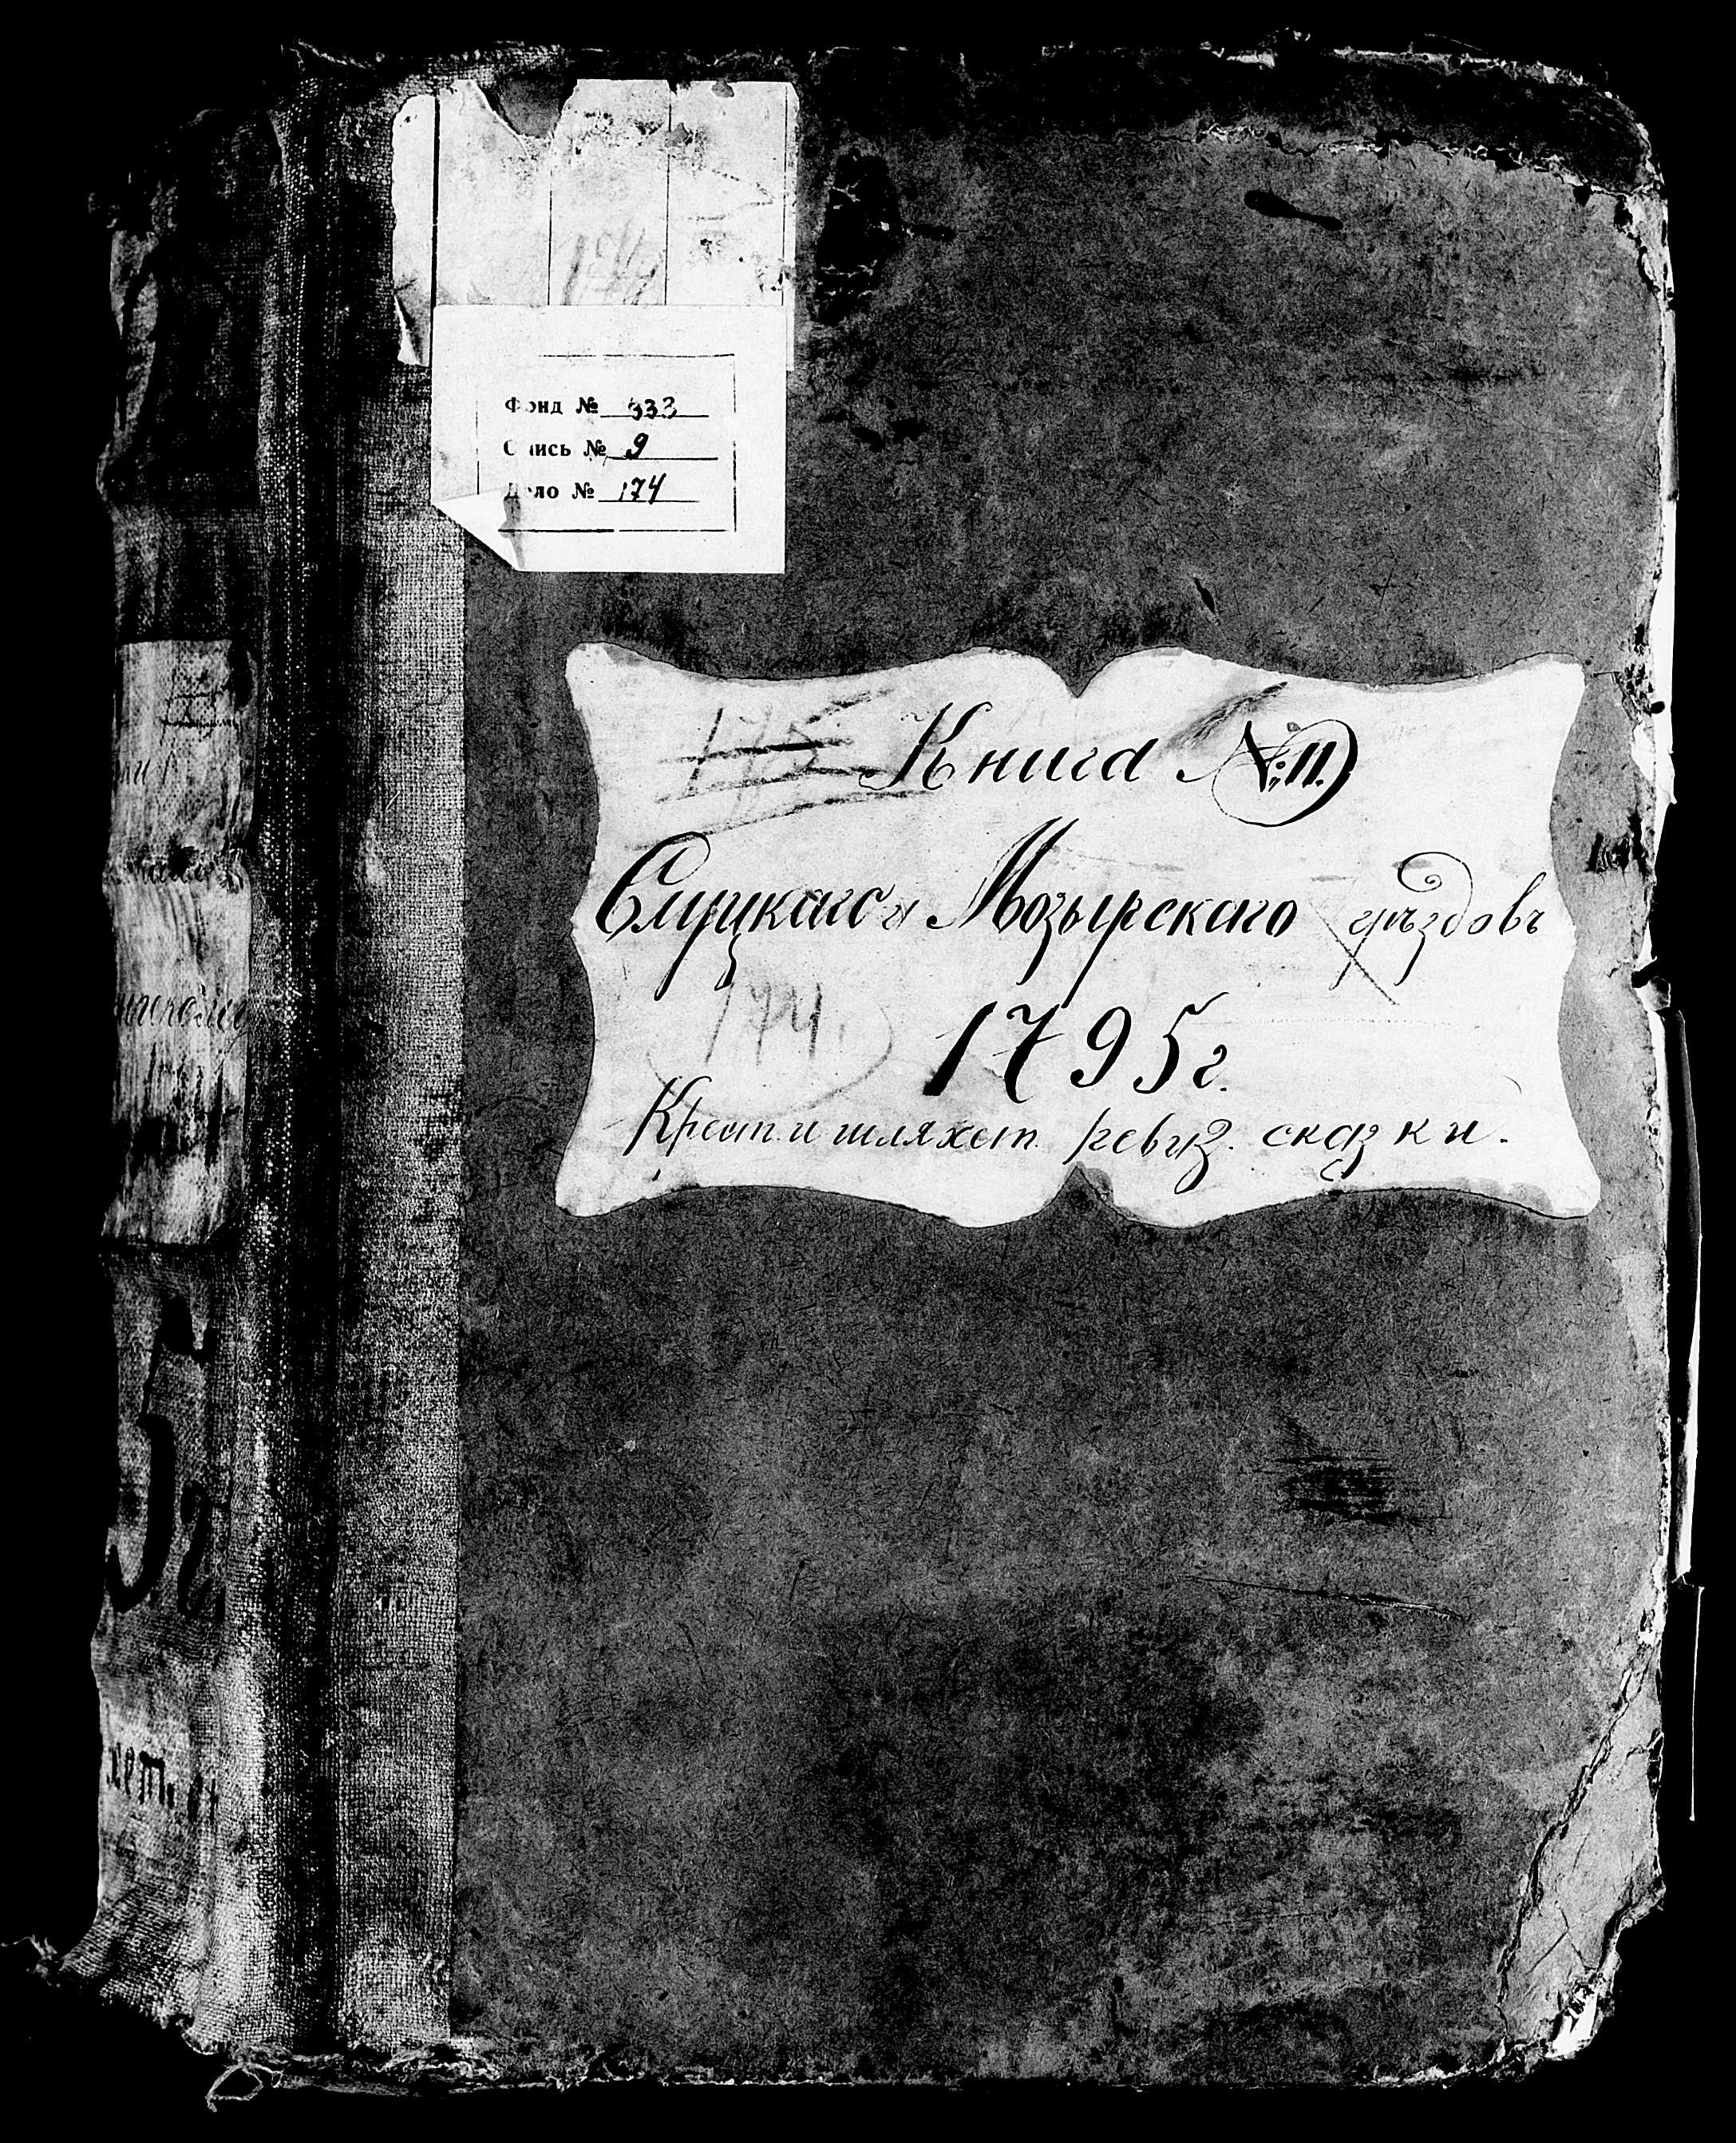 Фонд № 333
Опись № 9
Дело № 174
175 Книга №: 11.
Слуцкаго и Мозырскаго уѣздовъ
174.
1795 г.
Крест. и шляхет. ревиз. сказки.
5 г.
хет. и